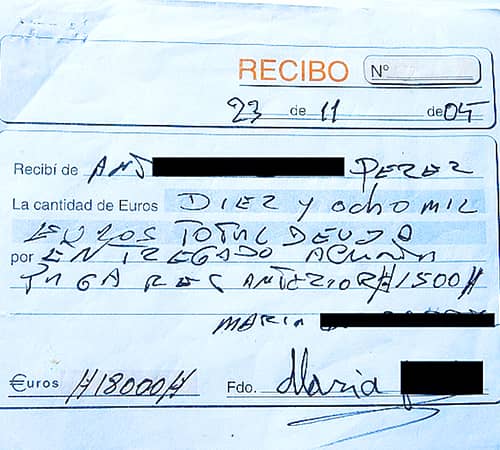 RECIBO Nº
23 de 11 de 04
Recibí de PEREZ
La cantidad de Euros DIEZ y ocho MIL
EUROS TOTAL DEUDA
por ENTREGADO
ANTERIOR #1500#
MARIA
Euros #18000# Fdo. Maria